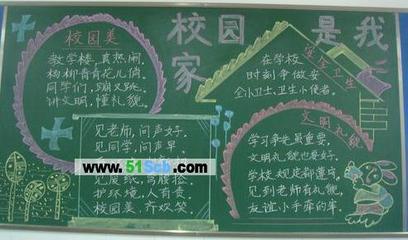 校园是我家
校园美
教学楼,真热闹,
杨柳青青花儿俏。
同学们,蹦又跳,
讲文明,懂礼貌。
见老师,问声好,
见同学,问声早。
www.51Scb.com
见废纸,弯腰捡,
护环境,人有责
校园美,齐欢笑
讲究卫生
在学校
时刻争做安
全小卫士,卫生小使者。
文明礼貌
学习争先虽重要,
文明礼貌也要好。
学校规定都遵守,
见到老师有礼貌,
友谊小手